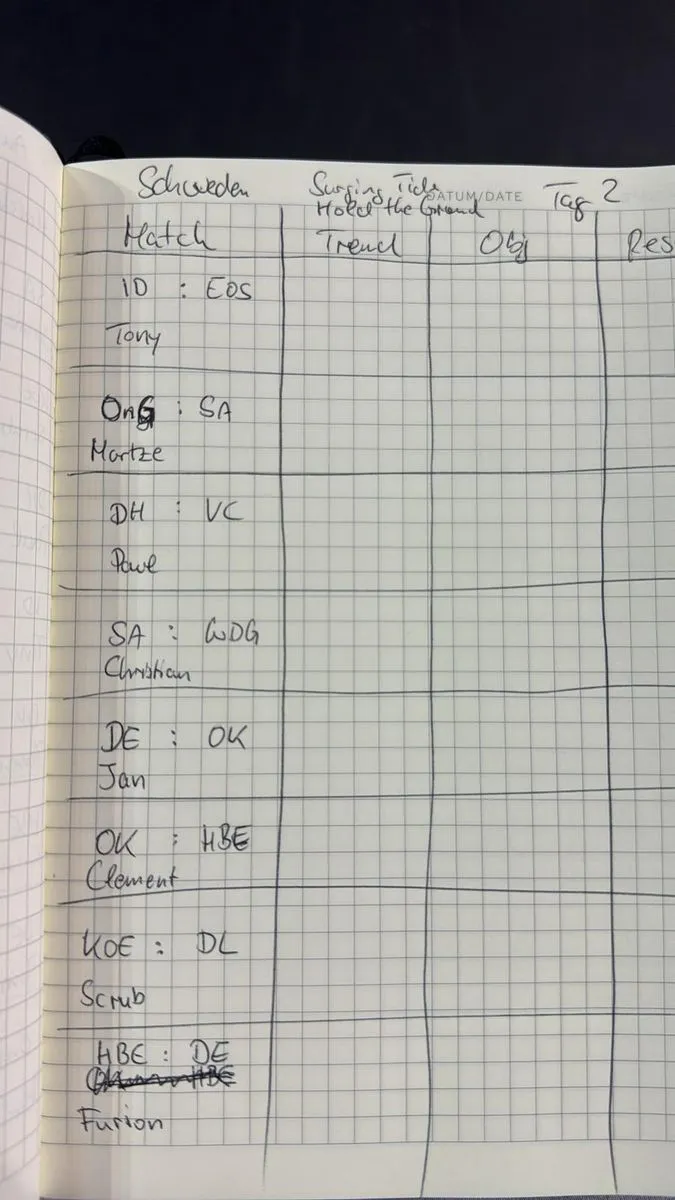 Schweden Surging Tide DATUM/DATE Tag 2
Hold the Ground
Match Trend Obj Res
ID : EOS
Tony
OnG : SA
Martze
DH : VC
Paul
SA : WDG
Christian
DE : OK
Jan
OK : HBE
Clement
KOE : DL
Scrub
HBE : DE
HBE
Furion